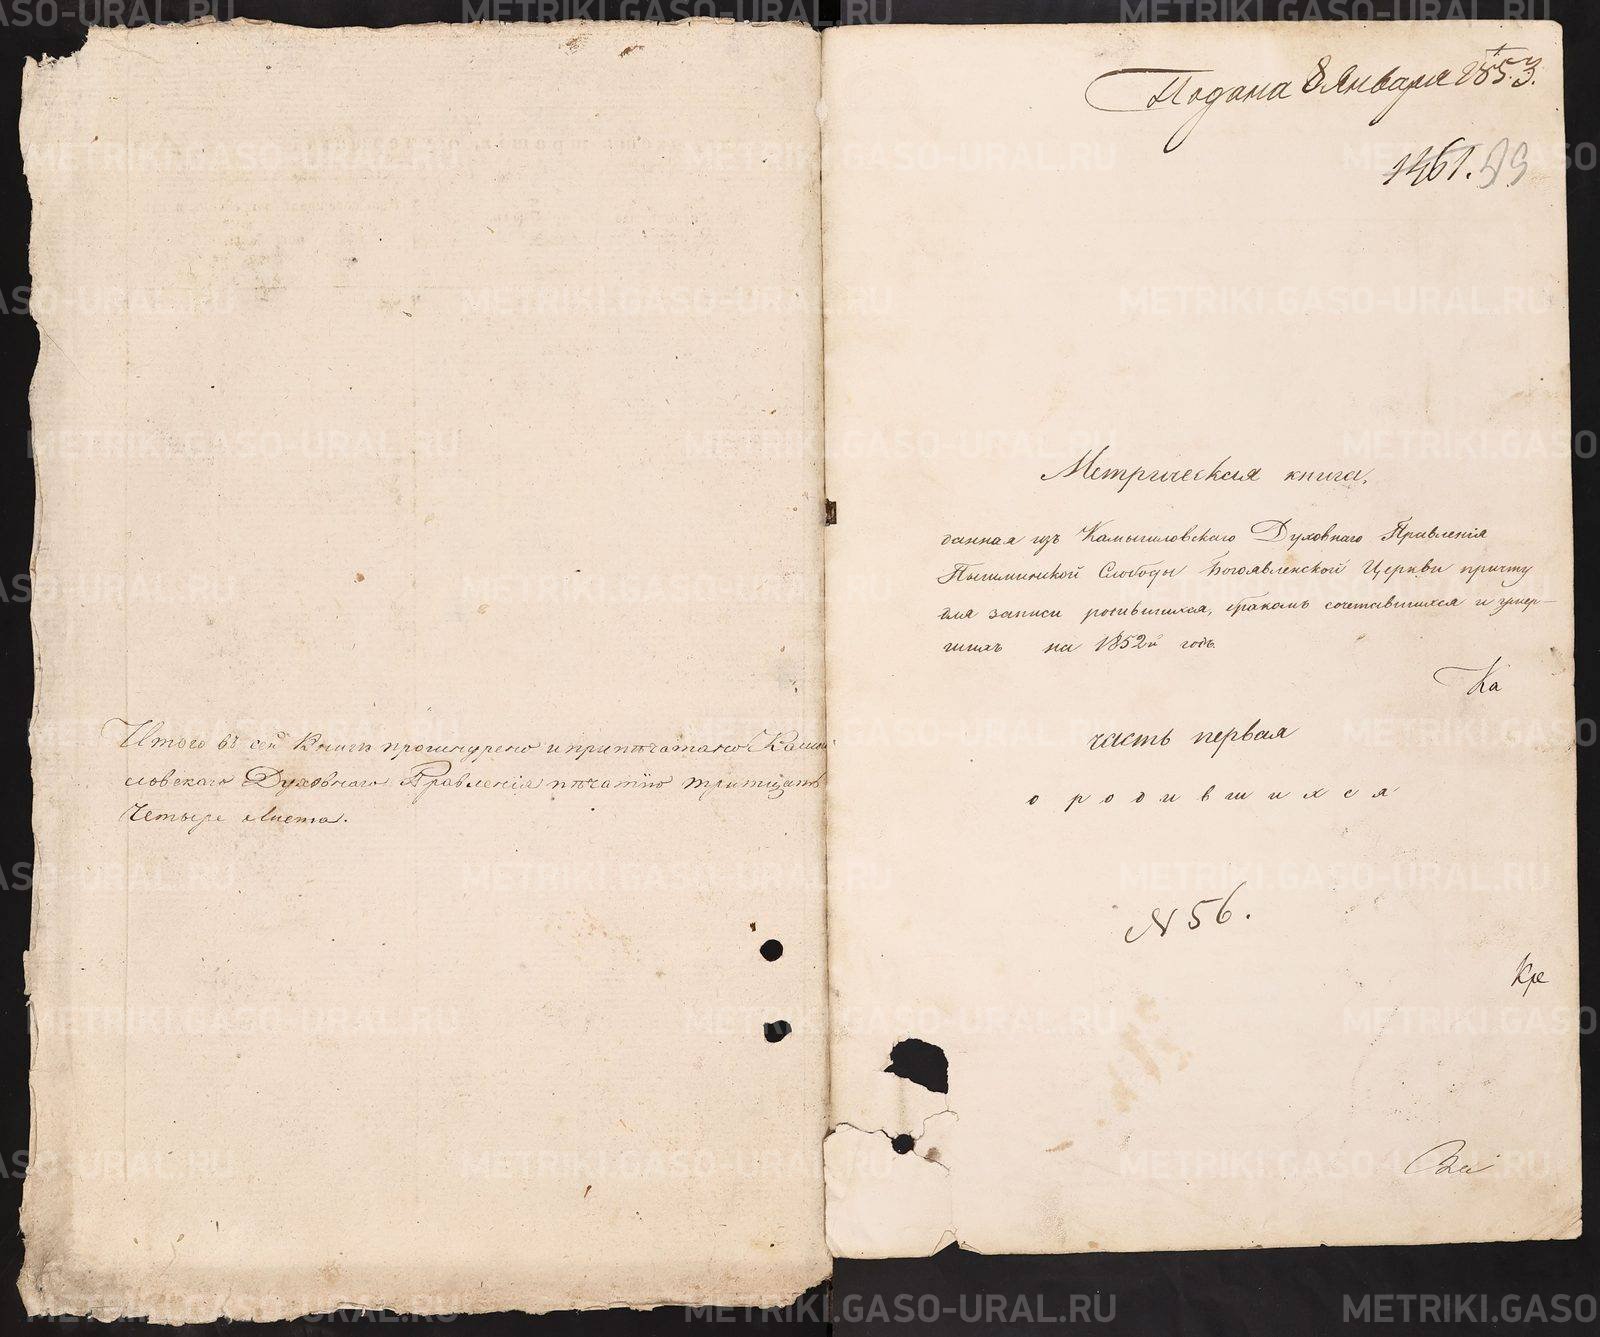 Итого въ сей Книгѣ прошнурено и припѣчатано Камы
ловскаго Духовнаго Правленія пѣчатью тритцать
Четыре листа.
Подана 8 Января 1853.
1461. 99
Метрическая книга,
данная изъ Камышловскаго Духовнаго Правленія
Пышминской Слободы Богоявленской Церкви причту
для записи родившихся, бракомъ сочетавшихся и умер-
шихъ на 1852й годъ.
Ка
часть первая
о родившихся
N 56.
Кре